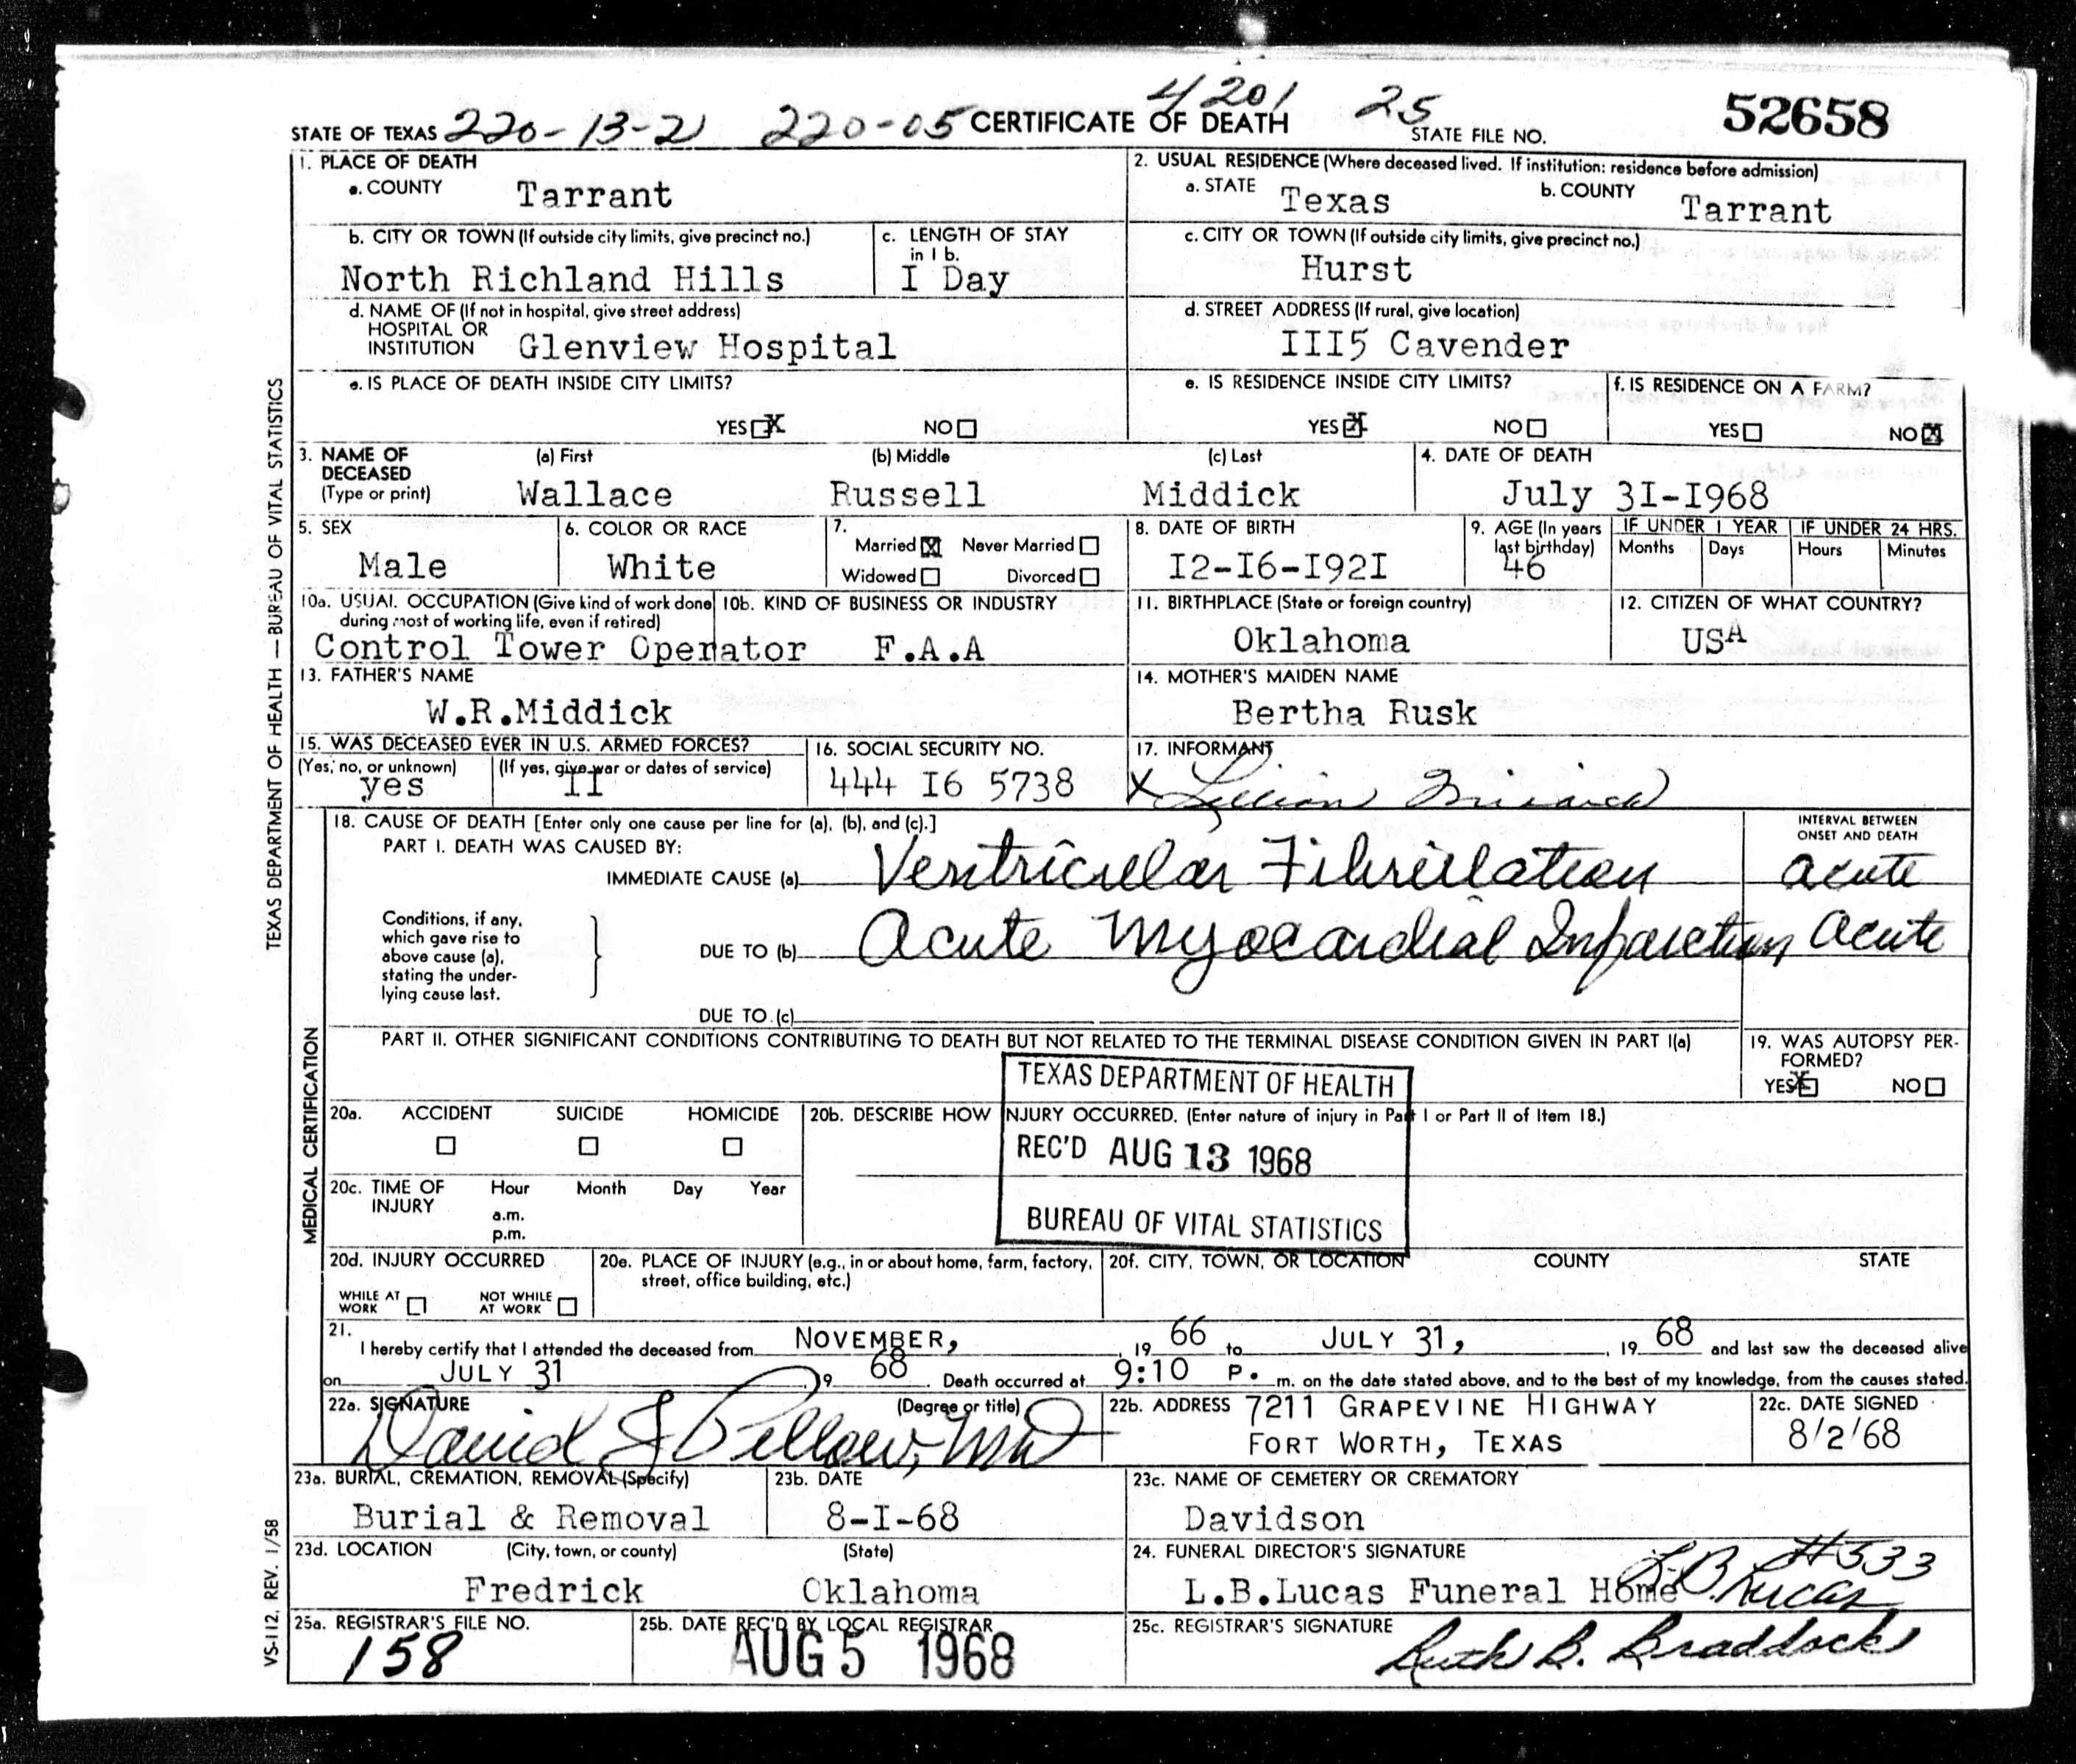 STATE OF TEXAS 220-13-21 220-05 CERTIFICATE OF DEATH 4201 25 STATE FILE NO. 52658
1. PLACE OF DEATH
a. COUNTY Tarrant
2. USUAL RESIDENCE (Where deceased lived. If institution: residence before admission)
a. STATE Texas b. COUNTY Tarrant
b. CITY OR TOWN (If outside city limits, give precinct no.)
North Richland Hills
c. LENGTH OF STAY in 1 b.
I Day
c. CITY OR TOWN (If outside city limits, give precinct no.)
Hurst
d. NAME OF (If not in hospital, give street address)
HOSPITAL OR
INSTITUTION Glenview Hospital
d. STREET ADDRESS (If rural, give location)
III5 Cavender
e. IS PLACE OF DEATH INSIDE CITY LIMITS?
YES X NO
e. IS RESIDENCE INSIDE CITY LIMITS?
YES X NO
f. IS RESIDENCE ON A FARM?
YES NO X
3. NAME OF DECEASED (Type or print)
(a) First (b) Middle (c) Last
Wallace Russell Middick
4. DATE OF DEATH
July 3I-I968
5. SEX
Male
6. COLOR OR RACE
White
7.
Married X Never Married
Widowed Divorced
8. DATE OF BIRTH
I2-I6-I92I
9. AGE (In years last birthday)
46
IF UNDER 1 YEAR
Months Days
IF UNDER 24 HRS.
Hours Minutes
10a. USUAL OCCUPATION (Give kind of work done
during most of working life, even if retired)
Control Tower Operator
10b. KIND OF BUSINESS OR INDUSTRY
F.A.A
11. BIRTHPLACE (State or foreign country)
Oklahoma
12. CITIZEN OF WHAT COUNTRY?
USA
13. FATHER'S NAME
W.R.Middick
14. MOTHER'S MAIDEN NAME
Bertha Rusk
15. WAS DECEASED EVER IN U.S. ARMED FORCES?
(Yes, no, or unknown) (If yes, give war or dates of service)
yes II
16. SOCIAL SECURITY NO.
444 I6 5738
17. INFORMANT
X Lillian
18. CAUSE OF DEATH [Enter only one cause per line for (a), (b), and (c).]
INTERVAL BETWEEN
ONSET AND DEATH
PART I. DEATH WAS CAUSED BY:
IMMEDIATE CAUSE (a) Ventricular Fibrillation acute
Conditions, if any,
which gave rise to
above cause (a),
stating the under-
lying cause last.
DUE TO (b) Acute Myocardial Infarction Acute
DUE TO (c)
PART II. OTHER SIGNIFICANT CONDITIONS CONTRIBUTING TO DEATH BUT NOT RELATED TO THE TERMINAL DISEASE CONDITION GIVEN IN PART I(a)
19. WAS AUTOPSY PER-
FORMED?
YES X NO
TEXAS DEPARTMENT OF HEALTH
REC'D AUG 13 1968
BUREAU OF VITAL STATISTICS
20a. ACCIDENT SUICIDE HOMICIDE
20b. DESCRIBE HOW INJURY OCCURRED. (Enter nature of injury in Part I or Part II of Item 18.)
20c. TIME OF INJURY
Hour Month Day Year
a.m.
p.m.
20d. INJURY OCCURRED
WHILE AT WORK NOT WHILE AT WORK
20e. PLACE OF INJURY (e.g., in or about home, farm, factory,
street, office building, etc.)
20f. CITY, TOWN, OR LOCATION COUNTY STATE
21.
I hereby certify that I attended the deceased from NOVEMBER, 19 66 to JULY 31, 19 68 and last saw the deceased alive
on JULY 31 19 68. Death occurred at 9:10 P. m. on the date stated above, and to the best of my knowledge, from the causes stated.
22a. SIGNATURE (Degree or title)
David J Pellow, MD
22b. ADDRESS 7211 GRAPEVINE HIGHWAY
FORT WORTH, TEXAS
22c. DATE SIGNED
8/2/68
23a. BURIAL, CREMATION, REMOVAL (Specify)
Burial & Removal
23b. DATE
8-I-68
23c. NAME OF CEMETERY OR CREMATORY
Davidson
23d. LOCATION (City, town, or county) (State)
Fredrick Oklahoma
24. FUNERAL DIRECTOR'S SIGNATURE #533
L.B.Lucas Funeral Home L.B. Lucas
25a. REGISTRAR'S FILE NO.
158
25b. DATE REC'D BY LOCAL REGISTRAR
AUG 5 1968
25c. REGISTRAR'S SIGNATURE
Ruth B. Braddock
TEXAS DEPARTMENT OF HEALTH — BUREAU OF VITAL STATISTICS
MEDICAL CERTIFICATION
VS-112, REV. 1/58